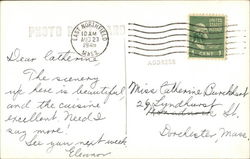 PHOTO POST CARD
EAST NORTHFIELD
10 AM
AUG 23
1946
MASS.
ADDRESS
1 CENT 1
Dear Catherine,
The scenery
up here is beautiful
and the cuisine
excellent. Need I
say more!
See you next week
Eleanor
Miss Catherine Burckhart
26 Lyndhurst
St.
Dorchester, Mass.